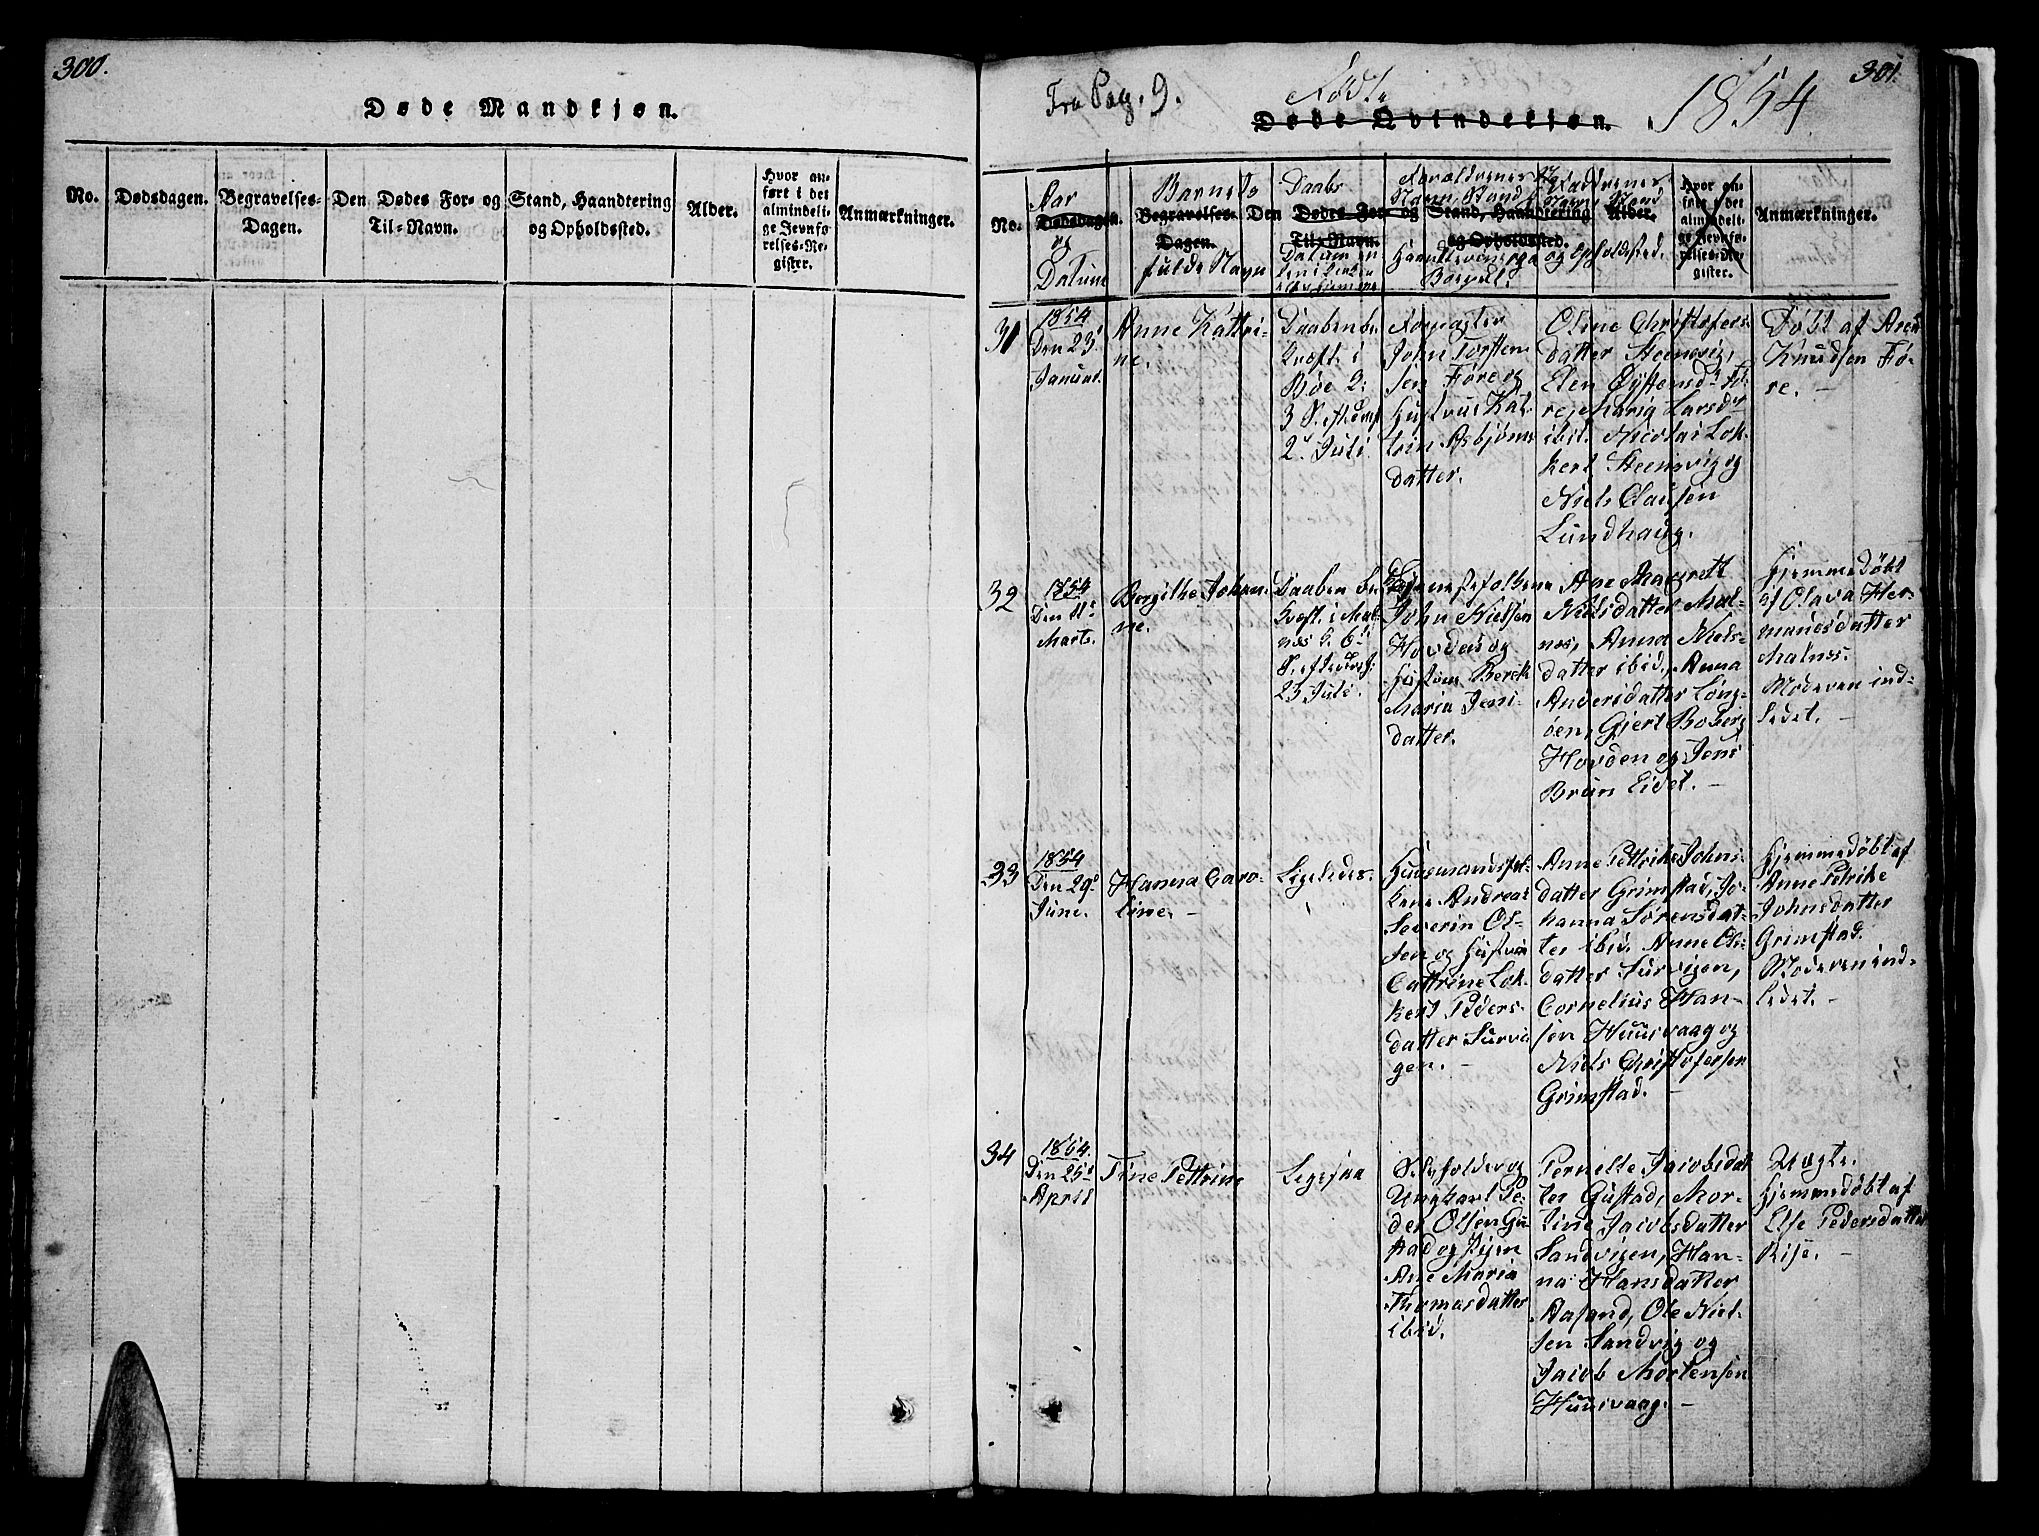 300.
Døde Mandkjøn.
No.
Dødsdagen.
Begravelses-
Dagen.
Den Dødes For- og
Til-Navn.
Stand, Haandtering
og Opholdssted.
Alder.
Hvor an-
ført i det
almindeli-
ge Jevnfø-
relses-Re-
gister.
Anmærkninger.
301.
Fra Pag. 9.
Fødte
Døde Qvindekjøn.
1854.
No.
Aar
Dødsdagen.
og
Datum
Barnets
Begravelses-
Dagen.
fulde Navn
Daabs
Den Dødes For- og
Til-Navn.
Datum
Forældrenes
Navn, Stand
Stand, Haandtering
og Opholdssted.
Faddernes
Navn, Stand
Alder.
og Opholdssted.
Hvor an-
ført i det
almindeli-
ge Jevnfø-
relses-Re-
gister.
Anmærkninger.
31
1854
Den 23de
Januar.
Anne Kattri-
ne.
Daaben be-
kræft. i
Bøe
2. Juli.
John Torsten-
sen Føre og
Hustrue Kat-
trin Asbjørns-
datter.
Oline Christofers-
datter Steensvig,
Elen Øystensdr Fø-
re, Marig Larsdr
ibid. Nicolai Lok-
kert Steensvig og
Niels Clausen
Lundhaug.
Døbt af Aren
Knudsen Fø-
re. -
32
1854
Den 11te
Marts.
Bergithe Johan-
ne.
Daaben be-
kræft. i Mal-
næs
23 Juli.
John Nielsen
Hovden og
Hustrue Berek
Maria Jens-
datter.
Ane Margrett
Nielsdatter Mal-
næs, Anna Niels-
datter ibid, Anna
Andersdatter Løng-
øen, Gjert Boberg
Hovden og Jens
Brun Eidet. -
Hjemmedøbt
af Olava Her-
mansdatter
Malnæs.
Moderen ind-
ledet. -
33
1854
Den 29de
June.
Hanna Caro-
line. -
Ligeledes.
Huusmandsfol-
kene Andreas
Severin Ol-
sen og Hustru
Cattrine Lok-
kert Peders-
datter Survi-
gen. -
Anne Pettrike Johns-
datter Grimstad, Jo-
hanna Sørensdat-
ter ibid. Anne Ols-
datter Survigen,
Cornelius Han-
sen Huusvaag og
Niels Christofersen
Grimstad. -
Hjemmedøbt af
Anne Petrike
Johnsdatter
Grimstad.
Moderen ind-
ledet. -
34
1854.
Den 25de
April
Tine Pettrine
Ligesaa
Selvfolder og
Ungkarl Pe-
der Olsen Gu-
stad og Pigen
Ane Maria
Thomasdatter
ibid.
Pernille Jacobsdat-
ter Gustad, Mor-
tine Jacobsdatter
Sandvigen, Han-
na Hansdatter
Aasand, Ole Niel-
sen Sandvig og
Jacob Mortensen
Huusvaag. -
Uægte.
Hjemmedøbt af
Else Pedersdatter
Rise. -